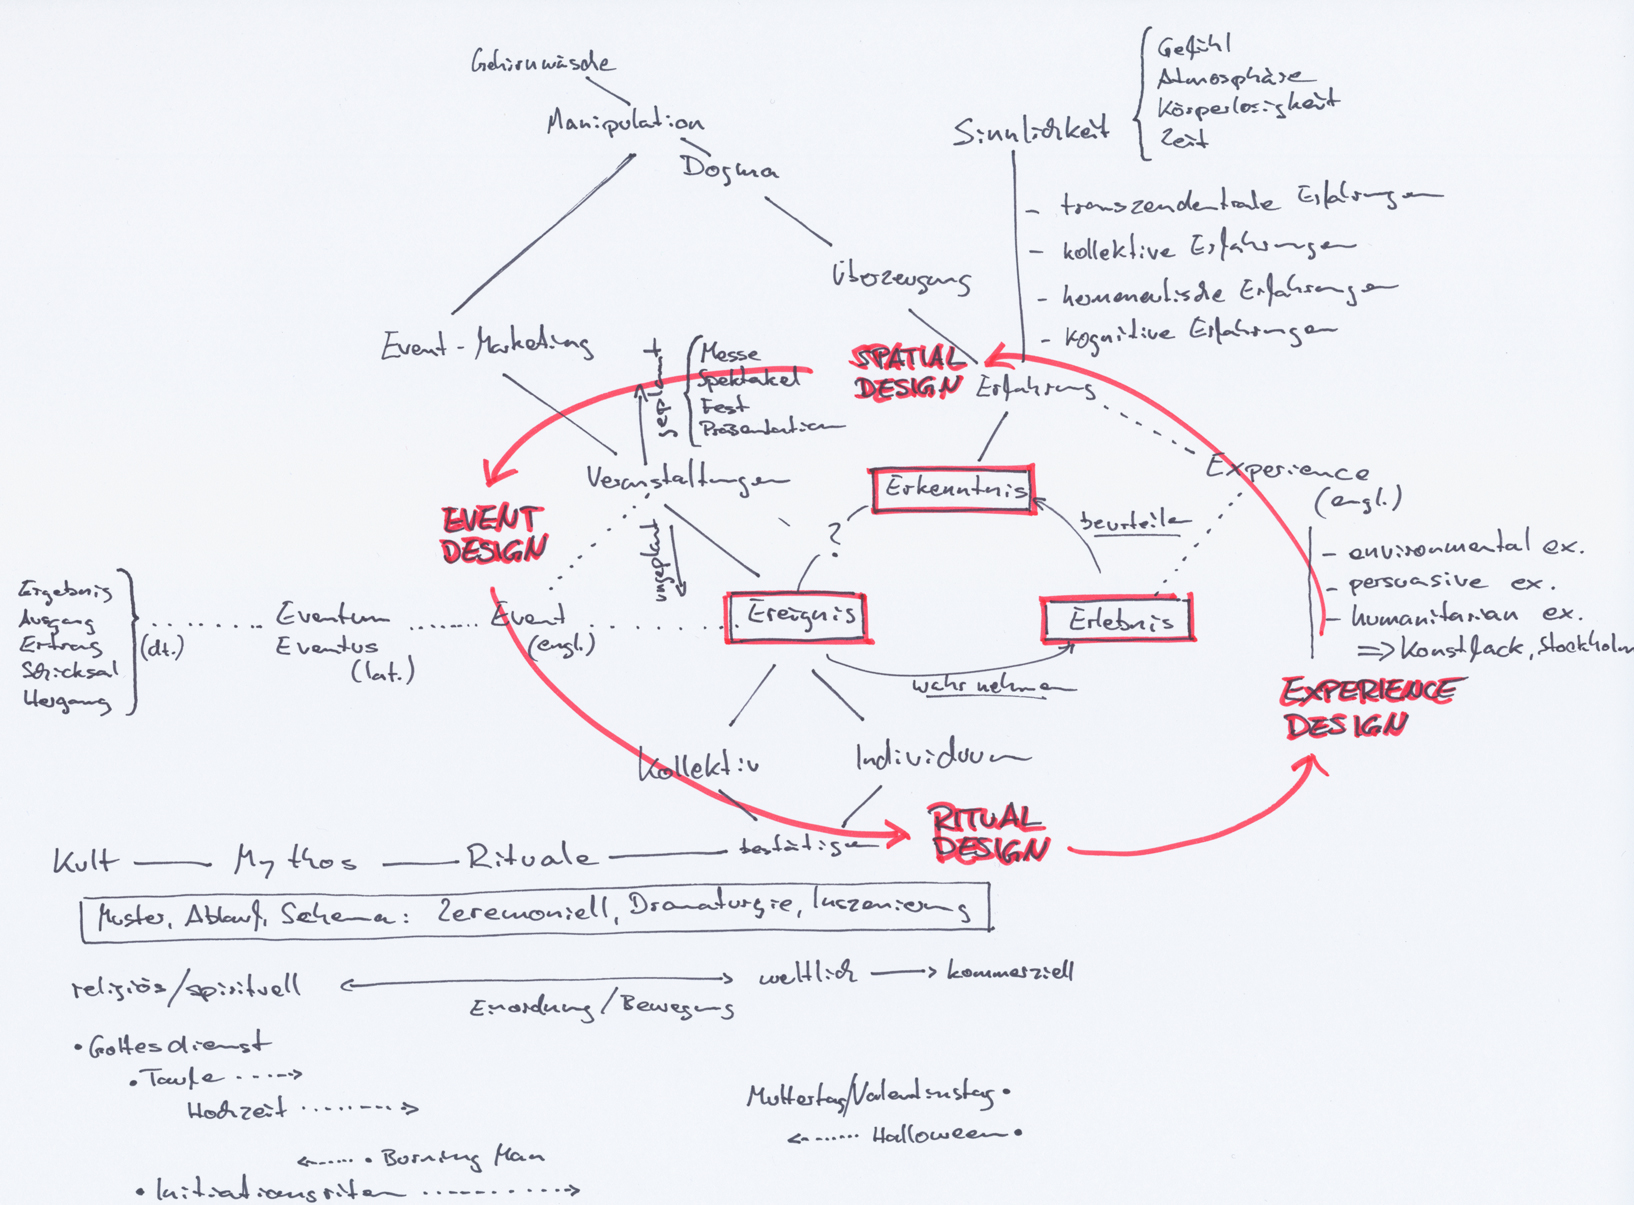 Gehirnwäsche
Manipulation
Dogma
Überzeugung
Sinnlichkeit
Gefühl
Atmosphäre
Körperlosigkeit
Zeit
- transzendentrale Erfahrungen
- kollektive Erfahrungen
- hermeneutische Erfahrungen
- kognitive Erfahrungen
Event-Marketing
geplant
Messe
Spektakel
Fest
Präsentation
SPATIAL
DESIGN
Erfahrung
Veranstaltungen
ungeplant
Erkenntnis
Experience
(engl.)
beurteilen
?
EVENT
DESIGN
- environmental ex.
- persuasive ex.
- humanitarian ex.
=> Konstfack, Stockholm
Ergebnis
Ausgang
Ertrag
Schicksal
Hergang
(dt.)
Eventum
Eventus
(lat.)
Event
(engl.)
Ereignis
Erlebnis
wahrnehmen
EXPERIENCE
DESIGN
Kollektiv
Individuum
RITUAL
DESIGN
Kult — Mythos — Rituale — bestätigen
Muster, Ablauf, Schema: Zeremoniell, Dramaturgie, Inszenierung
religiös/spirituell
weltlich → kommerziell
Einordnung/Bewegung
• Gottesdienst
• Taufe
Hochzeit
Muttertag/Valentinstag •
Halloween •
• Burning Man
• Initiationsriten